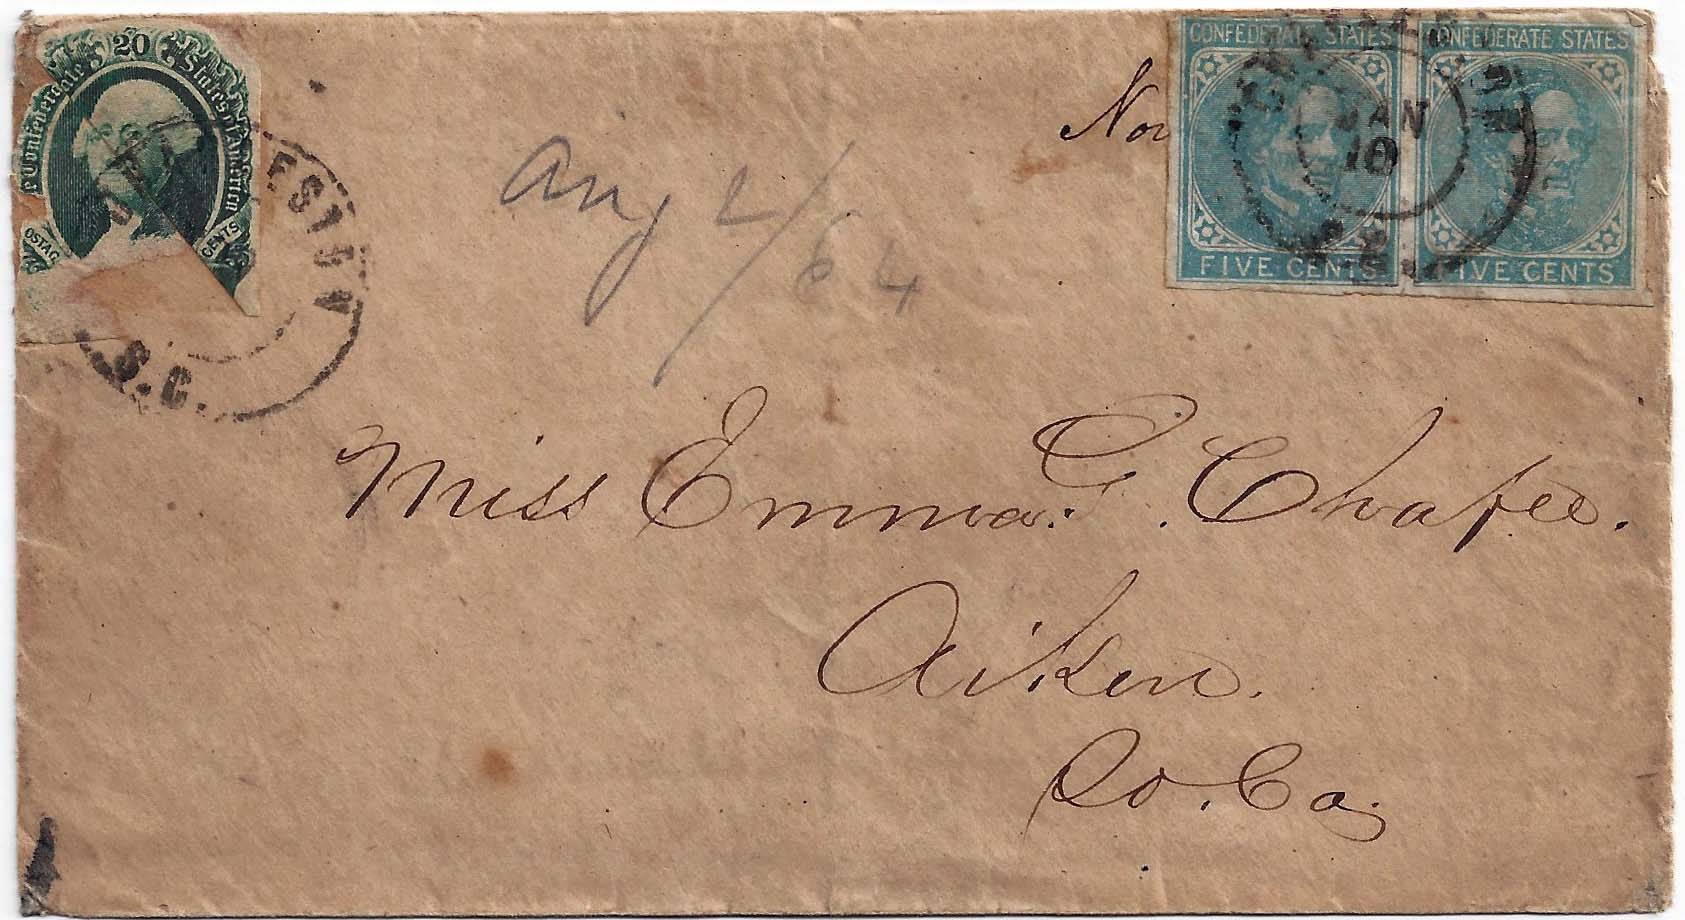 20
Confederate States of America
CENTS
CONFEDERATE STATES
FIVE CENTS
CONFEDERATE STATES
FIVE CENTS
JAN
10
S.C.
Aug 2/64
Miss Emma. G. Chafee.
Aiken.
So. Ca.